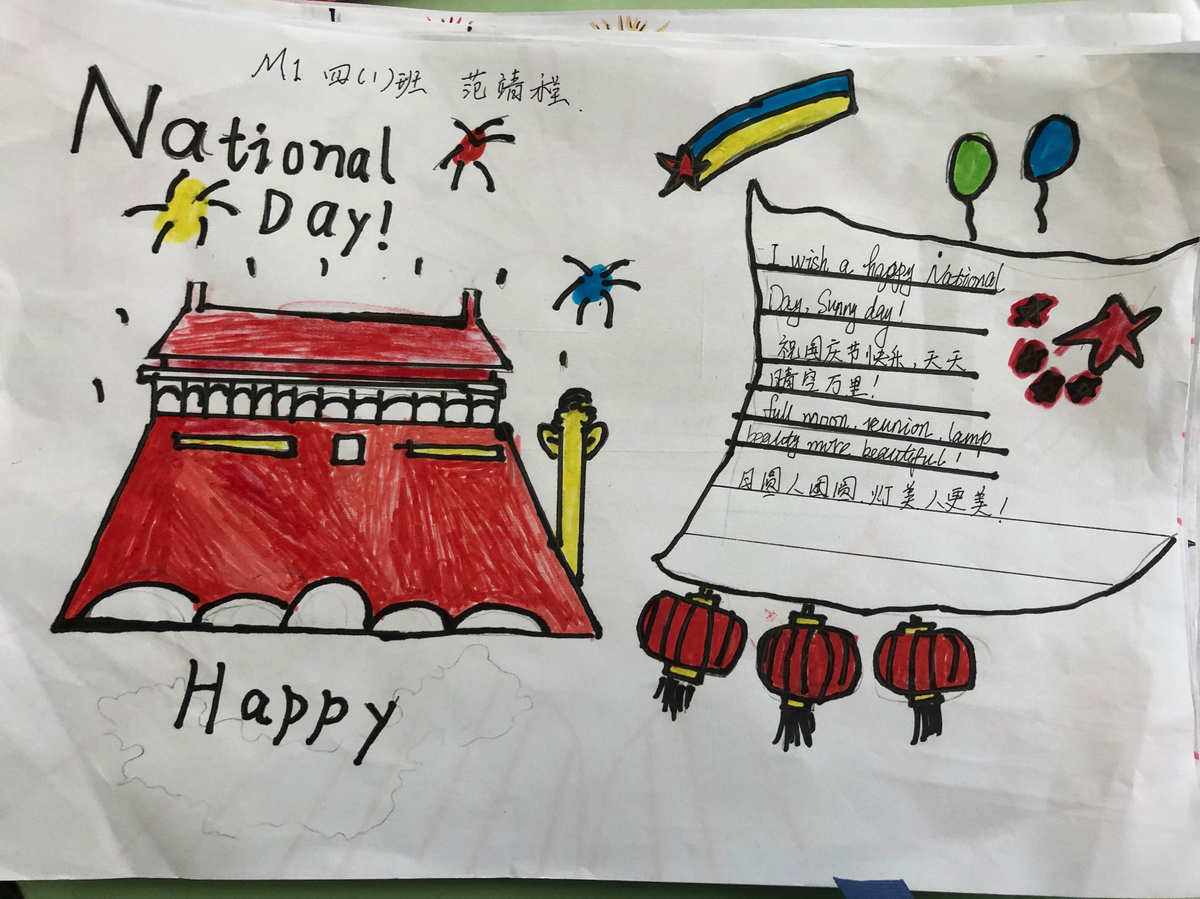 M1 四(1)班 范靖
National
Day!
I wish a happy National
Day, Sunny day!
祝国庆节快乐,天天
晴空万里!
full moon, reunion, lamp
beauty more beautiful!
月圆人团圆,灯美人更美!
Happy